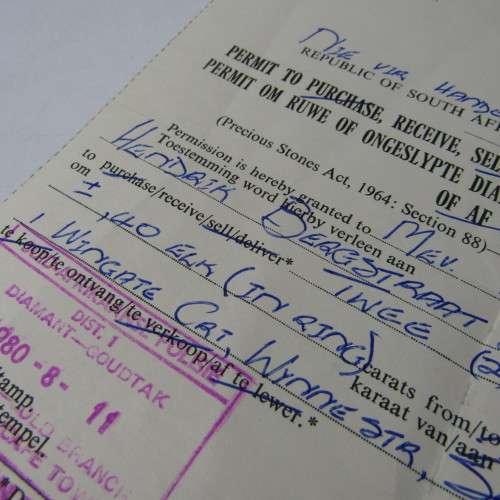 Nie vir Handel
REPUBLIC OF SOUTH AF
PERMIT TO PURCHASE, RECEIVE, SEL
PERMIT OM RUWE OF ONGESLYPTE DIA
OF AF
(Precious Stones Act, 1964: Section 88)—
Permission is hereby granted to
Toestemming word hierby verleen aan MEV.
HENDRIK BERGSTRAAT
to purchase/receive/sell/deliver* TWEE (2
om ± ,40 ELK (IN RING)
carats from/to
te koop/te ontvang/te verkoop/af te lewer.* karaat van/aan
1 WINGATE CRT, WYNNE STR, S
DIST. 1
DIAMANT—GOUDTAK
1980 -8- 11
GOLD BRANCH
CAPE TOWN
stamp.
stempel.